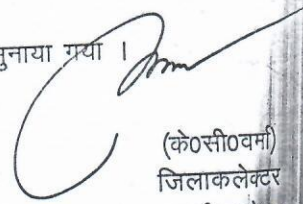 सुनाया गया ।
(के०सी०वर्मा)
जिलाकलेक्टर